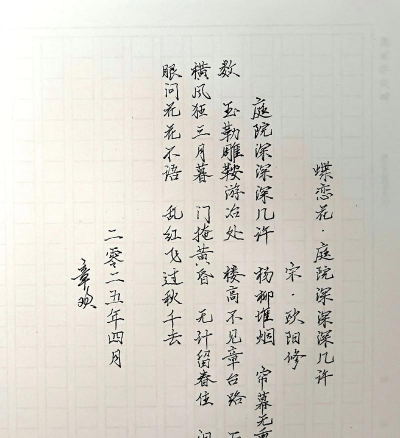 蝶恋花·庭院深深深几许
宋·欧阳修
庭院深深深几许 杨柳堆烟 帘幕无重
数 玉勒雕鞍游冶处 楼高不见章台路
横风狂三月暮 门掩黄昏 无计留春住 泪
眼问花花不语 乱红飞过秋千去
二零二五年四月
章